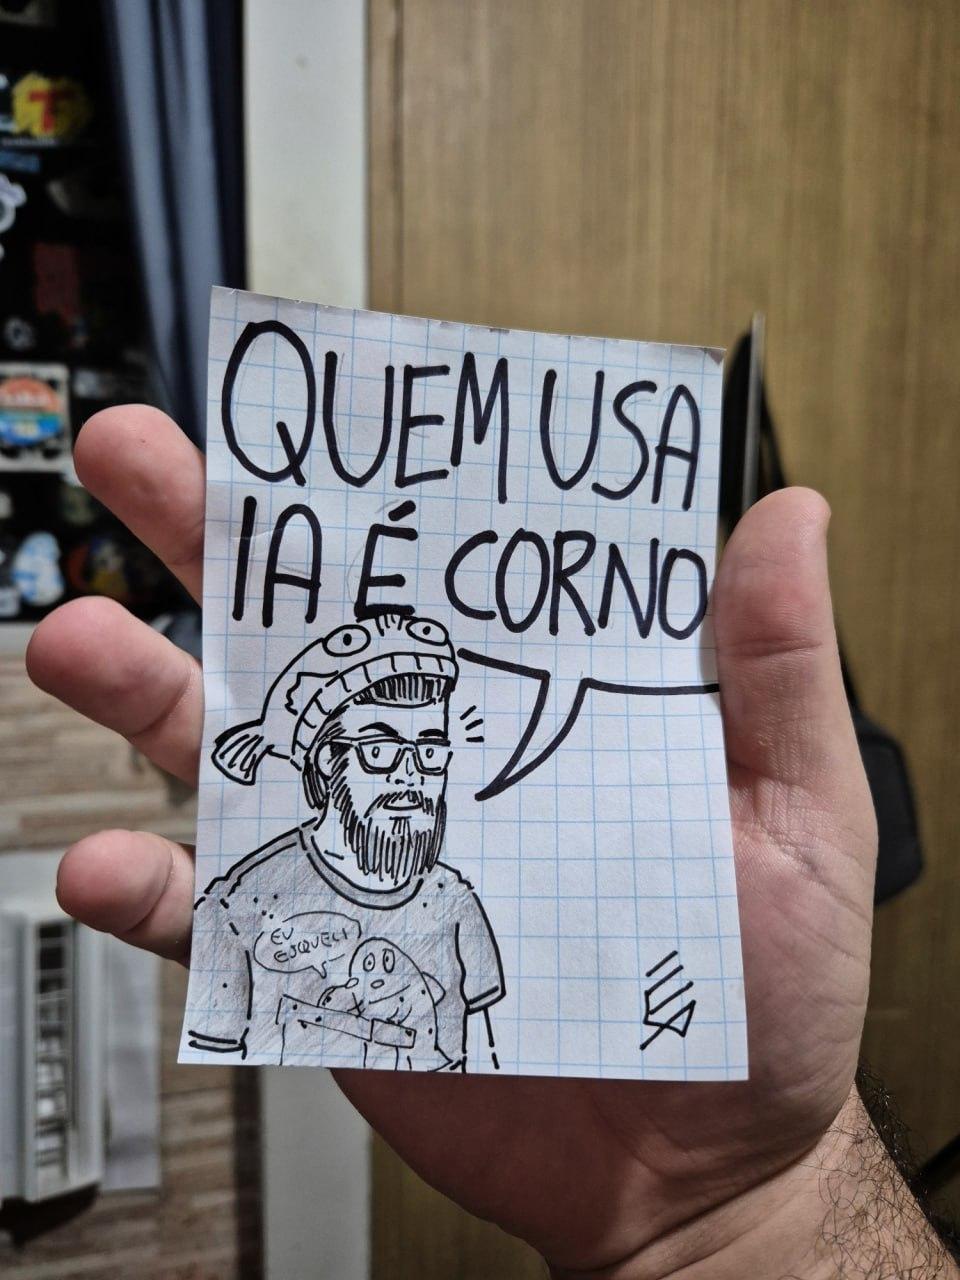 QUEM USA
IA É CORNO
EU
ESQUECI